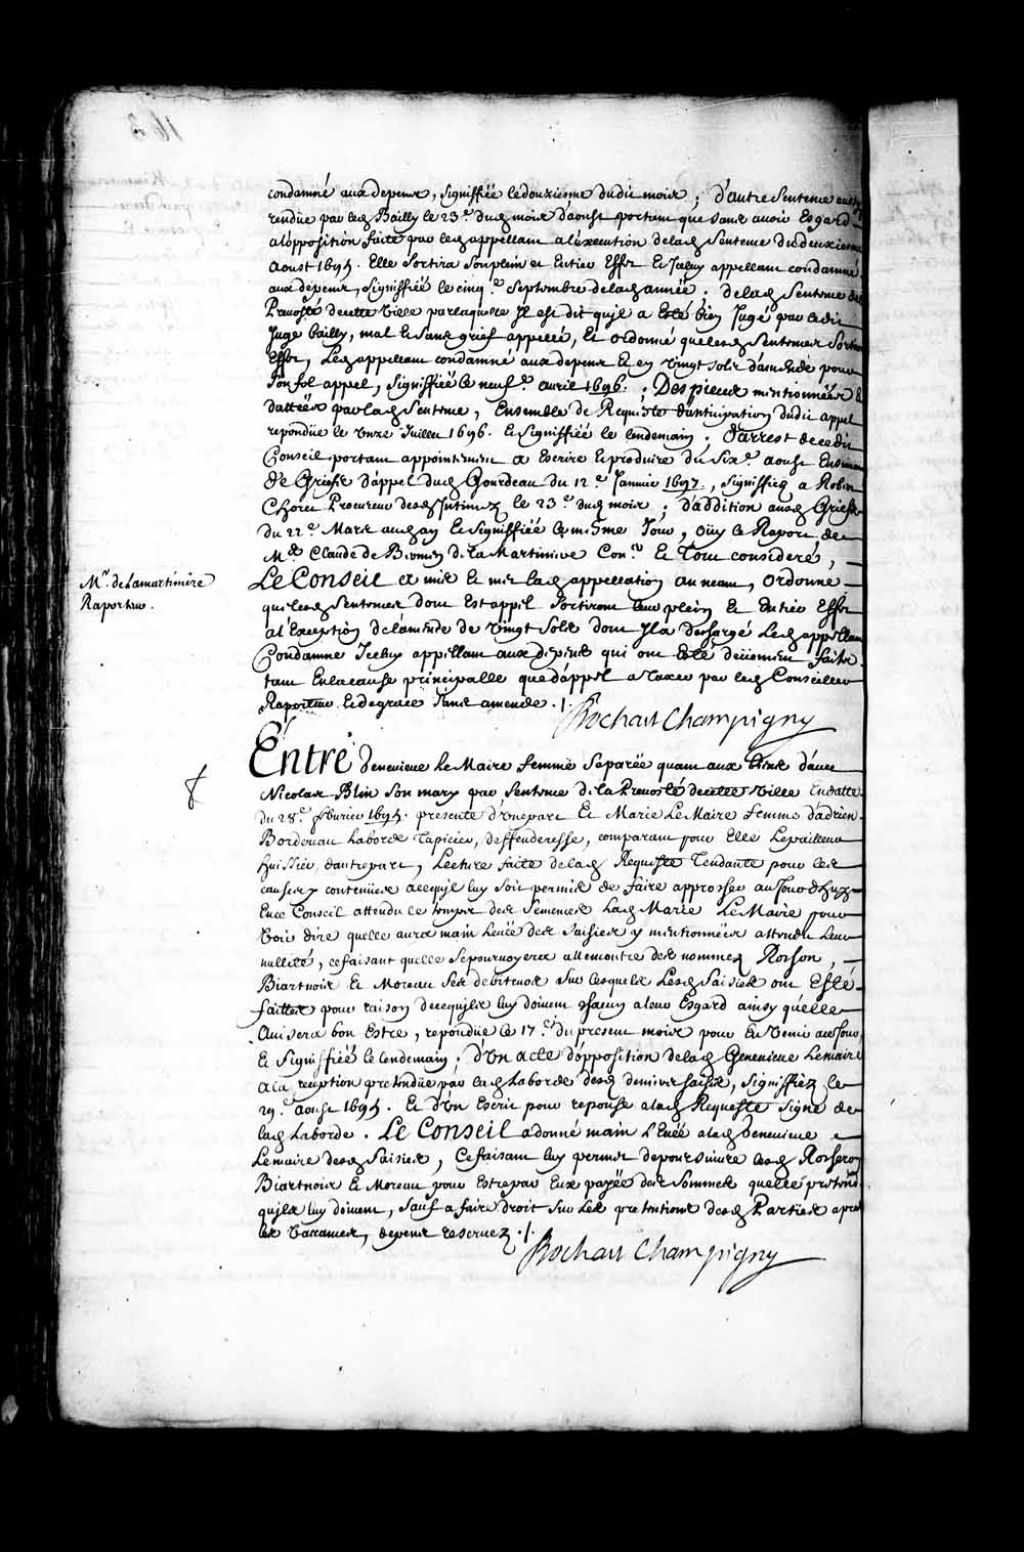 condamné aux depens, signiffiée le douziesme dudit mois; d'autre Sentence
rendüe par led Bailly le 23.e dud mois d'aoust portant que sans avoir Esgard
a l'opposition faite par led appellant a l'execution de lad Sentence du deuxiesme
Aoust 1695. Elle Sortira Son plein et Entier Effet Et Iceluy appellant condamné
aux depens, signiffiée le cinq.e Septembre de lad année. de lad Sentence de la
Prevosté de cette Ville par laquelle Il est dit qu'il a Esté bien Jugé par ledit
Juge bailly, mal et sans grief appellé, et ordonné que lesd Sentences Sortiront
Effet, Led appellant condamné aux depens Et en vingt sols d'amende pour
son fol appel, signiffiée le neuf.e avril 1696. Des pieces mentionnées &
dattées par lad Sentence, Ensemble de Requeste d'anticipation dudit appel
repondüe le Onze Juillet 1696. Et Signiffiée le lendemain; d'arrest de cedit
Conseil portant appointement a Escrire Et produire du Six.e aoust Ensuivant
de Griefs d'appel dud Gourdeau du 12.e Janvier 1697, signiffiez a Robin
Procureur desd Intimez le 23.e dud mois; d'addition ausd Griefs
du 22.e Mars aud an Et Signiffiée le mesme Jour, Oüy le Raport de
M.e Claude de Bermen de la Martiniere Con.er Et Tout consideré,
Mr. de Lamartiniere
Raporteur.
Le Conseil a mis Et met lad appellation au neant, Ordonne
que lesd Sentences dont Est appel Sortiront leur plein Et Entier Effet
a l'Exception de l'amende de vingt Sols dont Il a deschargé Led appellant
Condamne Icelluy appellant aux depens qui ont Esté deüement faits
tant En la cause principalle que d'appel a Taxer par led Conseiller
Raporteur Et de grace sans amende ./.
Bochart Champigny
Entre Genevieve Le Maire femme Separée quant aux biens d'avec
Nicolas Blin Son mary par Sentence de la Prevosté de cette Ville En datte
du 28.e febvrier 1695. presente d'une part Et Marie Le Maire femme d'adrien
Bordereau Laborde Tapicier, deffenderesse, comparant pour Elle Lepailleur
huissier, d'autre part, Lecture faite de lad Requeste Tendante pour les
causes y contenües a ce qu'il luy Soit permis de faire approcher au Jour d'huy
En ce Conseil attendu le temps des Semences Lad Marie Le Maire pour
Voir dire quelle aura main Levée des Saisies y mentionnées attendu Leur
nullité, ce faisant quelle Se pourvoyera allencontre des nommez Rosson,
Biartnois Et Moreau Ses debiteurs Sur lesquels Lesd Saisies ont Esté
faittes pour raison de ce qu'ils luy doivent chacun a leur Esgard ainsy quelle
Avisera bon Estre, repondüe le 17.e du present mois pour En Venir a ce Jour,
Et Signiffiée le lendemain; d'Un acte d'opposition de lad Genevieve Lemaire
a la reception pretendüe par lad Laborde desd deniers saisis, signiffiez le
29.e aoust 1695. Et d'Un Escrit pour reponse a lad Requeste Signé de
lad Laborde. Le Conseil a donné main Levée a lad Genevieve
Lemaire desd Saisies, Ce faisant luy permet de poursuivre lesd
Biartnois Et Moreau pour Estre par Eux payée des Sommes quelle pretend
qu'ils luy doivent, sauf a faire droit Sur Les pretentions desd Parties apres
les Vaccances, depens reservez ./.
Bochart Champigny